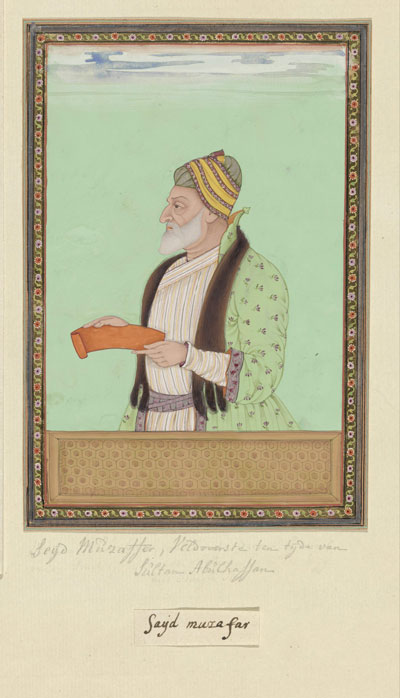 Seyd Muzaffer, Veldoverste ten tyde van
Sultan Abulhassan
Sayd muzafar